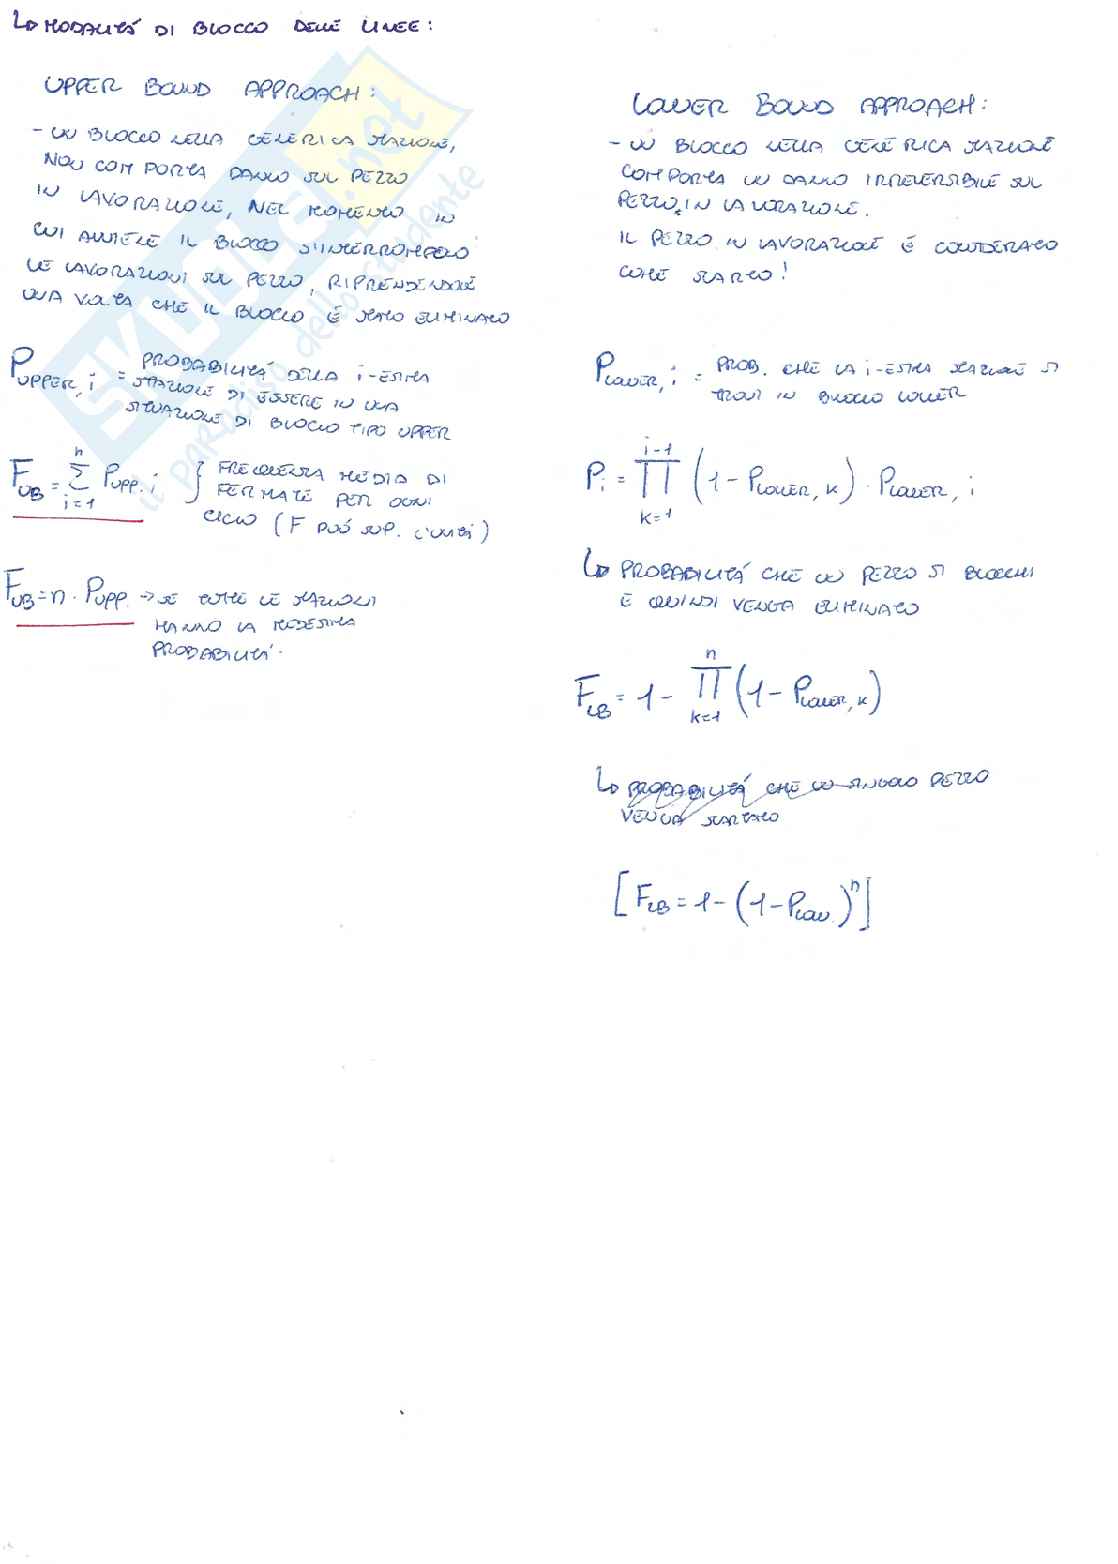 ↳ MODALITÁ DI BLOCCO DELLE LINEE:
UPPER BOUND APPROACH:
- UN BLOCCO NELLA GENERICA STAZIONE,
NON COMPORTA DANNO SUL PEZZO
IN LAVORAZIONE, NEL MOMENTO IN
CUI AVVIENE IL BLOCCO S'INTERROMPONO
LE LAVORAZIONI SUL PEZZO, RIPRENDENDOLE
UNA VOLTA CHE IL BLOCCO É STATO ELIMINATO
P UPPER, i = PROBABILITÁ DELLA i-ESIMA
STAZIONE DI ESSERE IN UNA
SITUAZIONE DI BLOCCO TIPO UPPER
F_UB = Σ_{i=1}^{n} P_UPP. i } FREQUENZA MEDIA DI
FERMATE PER OGNI
CICLO (F PUÓ SUP. L'UNITÁ)
F_UB = n · P_UPP. → SE TUTTE LE STAZIONI
HANNO LA MEDESIMA
PROBABILITÁ.
LOWER BOUND APPROACH:
- UN BLOCCO NELLA GENERICA STAZIONE
COMPORTA UN DANNO IRREVERSIBILE SUL
PEZZO IN LAVORAZIONE.
IL PEZZO IN LAVORAZIONE É CONSIDERATO
COME SCARTO!
P LOWER, i = PROB. CHE LA i-ESIMA STAZIONE SI
TROVI IN BLOCCO LOWER
P_i = Π_{k=1}^{i-1} (1 - P_LOWER, k) · P_LOWER, i
↳ PROBABILITÁ CHE UN PEZZO SI BLOCCHI
E QUINDI VENGA ELIMINATO
F_LB = 1 - Π_{k=1}^{n} (1 - P_LOWER, k)
↳ PROBABILITÁ CHE UN SINGOLO PEZZO
VENGA SCARTATO
[F_LB = 1 - (1 - P_LOW.)^n]
SKUOLA.net
il paradiso dello studente